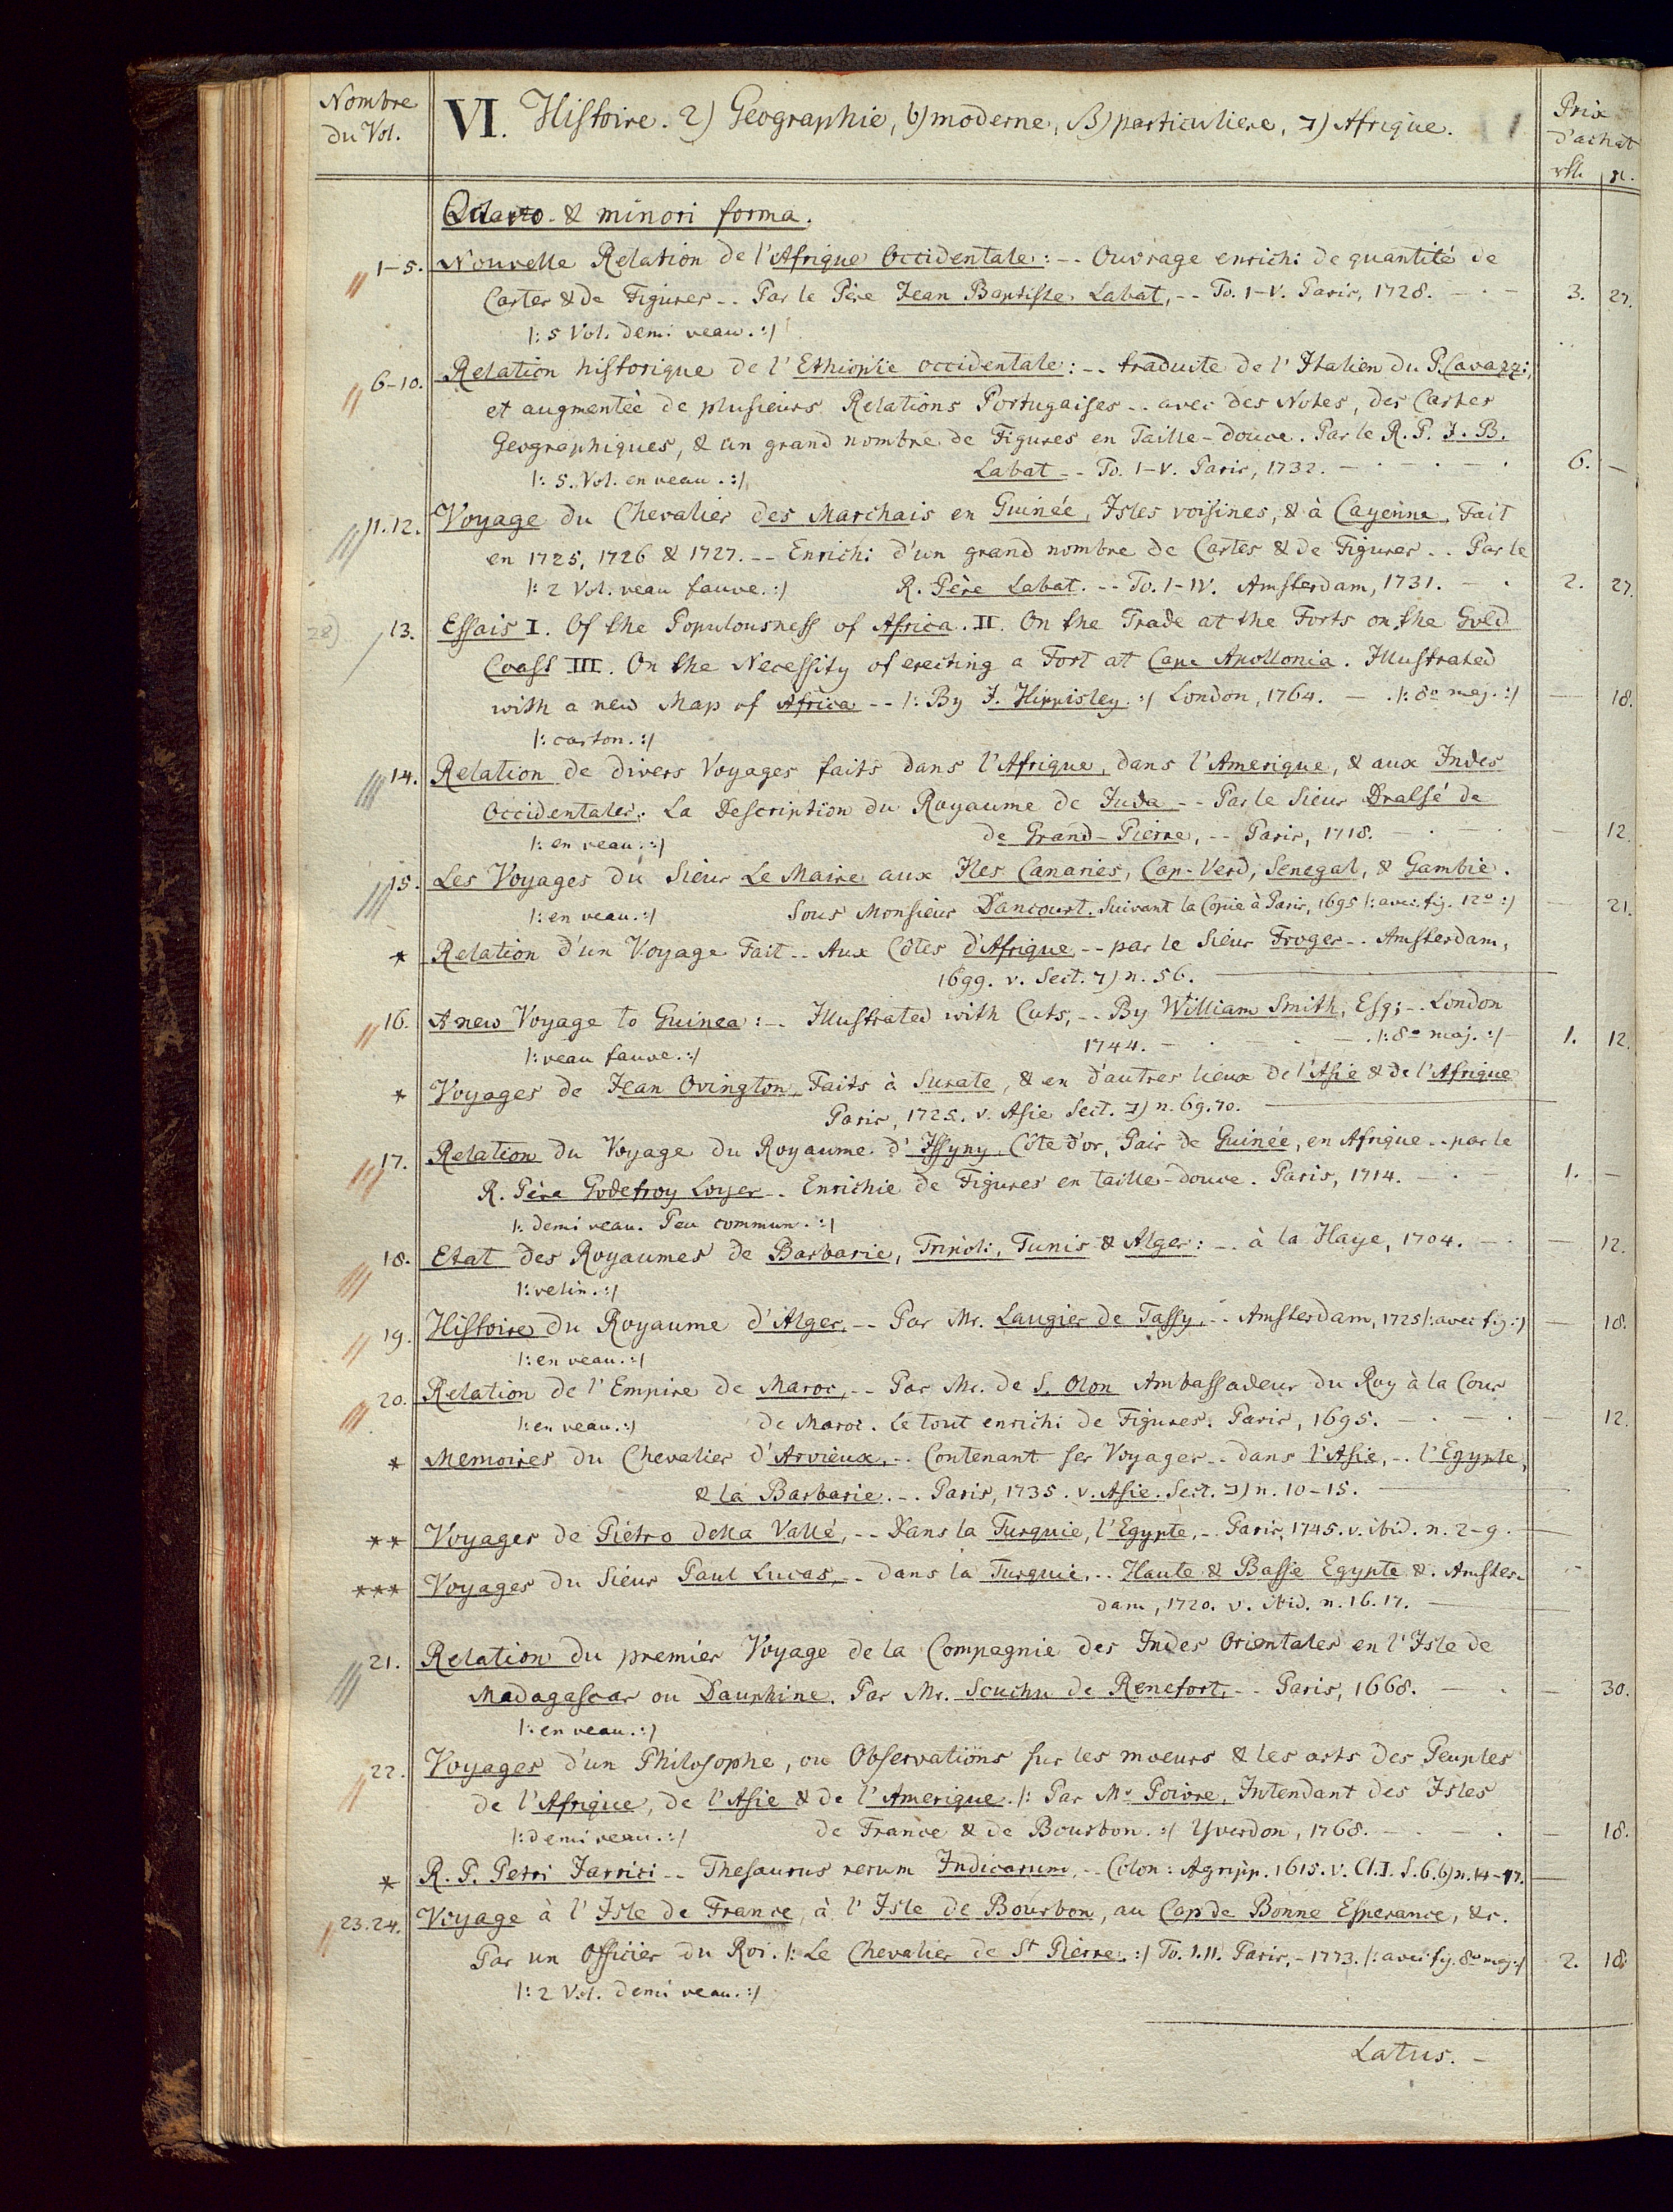 Nombre du Vol.
VI. Histoire. 2) Geographie, b) moderne, β) particuliere, ד) Afrique.
Prix d'achat
rtl. | sc.
Octavo & minori forma.
1-5. Nouvelle Relation de l'Afrique Occidentale: -- Ouvrage enrichi de quantité de
Cartes & de Figures -- Par le Père Jean Baptiste Labat, -- To. I-V. Paris, 1728. — · — 3. 27.
|: 5 Vol. demi veau. :|
6-10. Relation historique de l'Ethiopie occidentale: -- traduite de l'Italien du P. Cavazzi,
et augmentée de plusieurs Relations Portugaises -- avec des Notes, des Cartes
Geographiques, & un grand nombre de Figures en Taille-douce. Par le R. P. J. B.
|: 5. Vol. en veau. :| Labat -- To. I-V. Paris, 1732. — · — · — · 6. —
11.12. Voyage du Chevalier des Marchais en Guinée, Isles voisines, & à Cayenne, Fait
en 1725, 1726 & 1727. -- Enrichi d'un grand nombre de Cartes & de Figures -- Par le
|: 2 Vol. veau fauve. :| R. Père Labat. -- To. I-IV. Amsterdam, 1731. — · 2. 27.
28) 13. Essais I. Of the Populousness of Africa. II. On the Trade at the Forts on the Gold
Coast III. On the Necessity of erecting a Fort at Cape Apollonia. Illustrated
with a new Map of Africa -- |: By J. Hippisley. :| London, 1764. — · |: 8º maj. :| — 18.
|: carton. :|
14. Relation de divers Voyages faits dans l'Afrique, dans l'Amerique, & aux Indes
Occidentales. La Description du Royaume de Juda -- Par le Sieur Dralsé de
|: en veau. :| de Grand-Pierre, -- Paris, 1718. — · — · — 12.
15. Les Voyages du Sieur Le Maire aux Iles Canaries, Cap-Verd, Senegal, & Gambie.
|: en veau. :| Sous Monsieur Dancourt. Suivant la Copie à Paris, 1695 |: avec fig. 12º :| — 21.
* Relation d'un Voyage Fait -- Aux Côtes d'Afrique -- par le Sieur Froger -- Amsterdam,
1699. v. Sect. ד) n. 56. —
16. A new Voyage to Guinea: -- Illustrated with Cuts, -- By William Smith, Esq; -- London
|: veau fauve. :| 1744. — · — · — · |: 8º maj. :| — 1. 12.
* Voyages de Jean Ovington, Faits à Surate, & en d'autres lieux de l'Asie & de l'Afrique
Paris, 1725. v. Asie Sect. ד) n. 69.70. —
17. Relation du Voyage du Royaume d'Issyny, Côte d'or, Païs de Guinée, en Afrique -- par le
R. Père Godefroy Loyer -- Enrichie de Figures en taille-douce. Paris, 1714. — · — 1. —
|: demi veau. Peu commun. :|
18. Etat des Royaumes de Barbarie, Tripoli, Tunis & Alger: -- à la Haye, 1704. — · — 12.
|: velin. :|
19. Histoire du Royaume d'Alger, -- Par Mr. Laugier de Tassy, -- Amsterdam, 1725 |: avec fig. :| — 18.
|: en veau. :|
20. Relation de l'Empire de Maroc, -- Par Mr. de S. Olon Ambassadeur du Roy à la Cour
|: en veau. :| de Maroc. Le tout enrichi de Figures. Paris, 1695. — · — · — 12.
* Memoires du Chevalier d'Arvieux, -- Contenant ses Voyages -- dans l'Asie, -- l'Egypte,
& la Barbarie. -- Paris, 1735. v. Asie. Sect. ד) n. 10-15. —
** Voyages de Piétro della Vallé, -- Dans la Turquie, l'Egypte, -- Paris, 1745. v. ibid. n. 2-9. —
*** Voyages du Sieur Paul Lucas, -- dans la Turquie, -- Haute & Basse Egypte &. Amster-
dam, 1720. v. ibid. n. 16.17. —
21. Relation du premier Voyage de la Compagnie des Indes Orientales en l'Isle de
Madagascar ou Dauphine. Par Mr. Souchu de Renefort, -- Paris, 1668. — · — 30.
|: en veau. :|
22. Voyages d'un Philosophe, ou Observations sur les moeurs & les arts des Peuples
de l'Afrique, de l'Asie & de l'Amerique. |: Par Mr Poivre, Intendant des Isles
|: demi veau. :| de France & de Bourbon. :| Yverdon, 1768. — · — · — 18.
* R. P. Petri Jarrici -- Thesaurus rerum Indicarum, -- Colon: Agripp. 1615. v. Cl. I. S. 6. 6) n. 14-17. —
23.24. Voyage à l'Isle de France, à l'Isle de Bourbon, au Cap de Bonne Esperance, &c.
Par un Officier du Roi. |: Le Chevalier de St Pierre. :| To. I.II. Paris, - 1773. |: avec fig. 8º maj. :| 2. 18.
|: 2 Vol. demi veau. :|
Latus. —